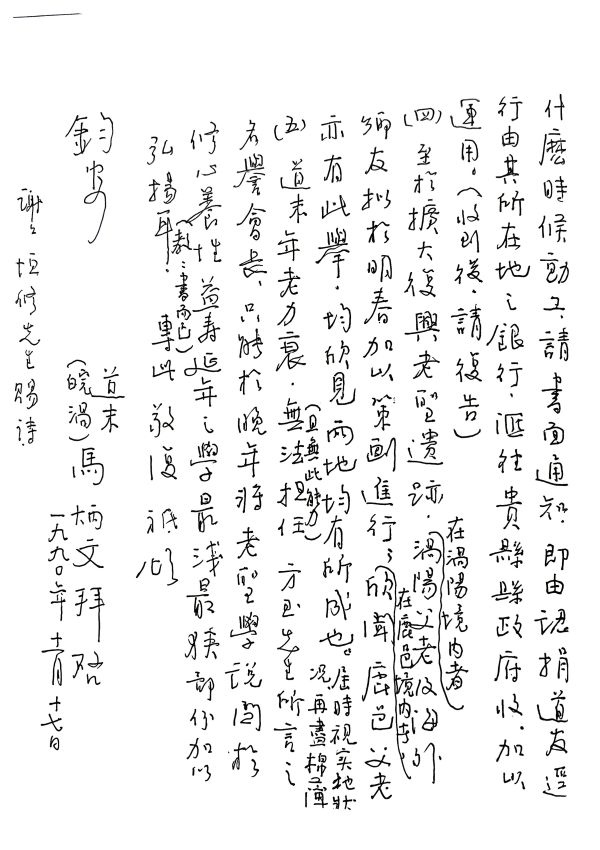 什麼時候動工。請書面通知。即由認捐道友逕
行由其所在地之銀行。滙往貴縣縣政府收。加以
運用。(收到後。請復告)
(四)至於擴大復興老聖遺跡。渦陽父老及海外
在渦陽境內者
師友擬於明春加以策劃進行；欣聞鹿邑父老
在鹿邑境內者
亦有此舉。均欣見兩地均有所成也。屆時視实地狀
况再盡棉薄
(五)道末年老力衰。無法担任方玉先生所言之
(且無此能力)
名譽會長。只能於晚年將老聖學說関於
修心養性益壽延年之學最淺最狹部份加以
弘揚耳。專此敬復祇頌
(教教書而已)
鈞安
道末
(皖渦)馬炳文拜啓
一九九〇年十一月十七日
謝謝恒修先生賜詩